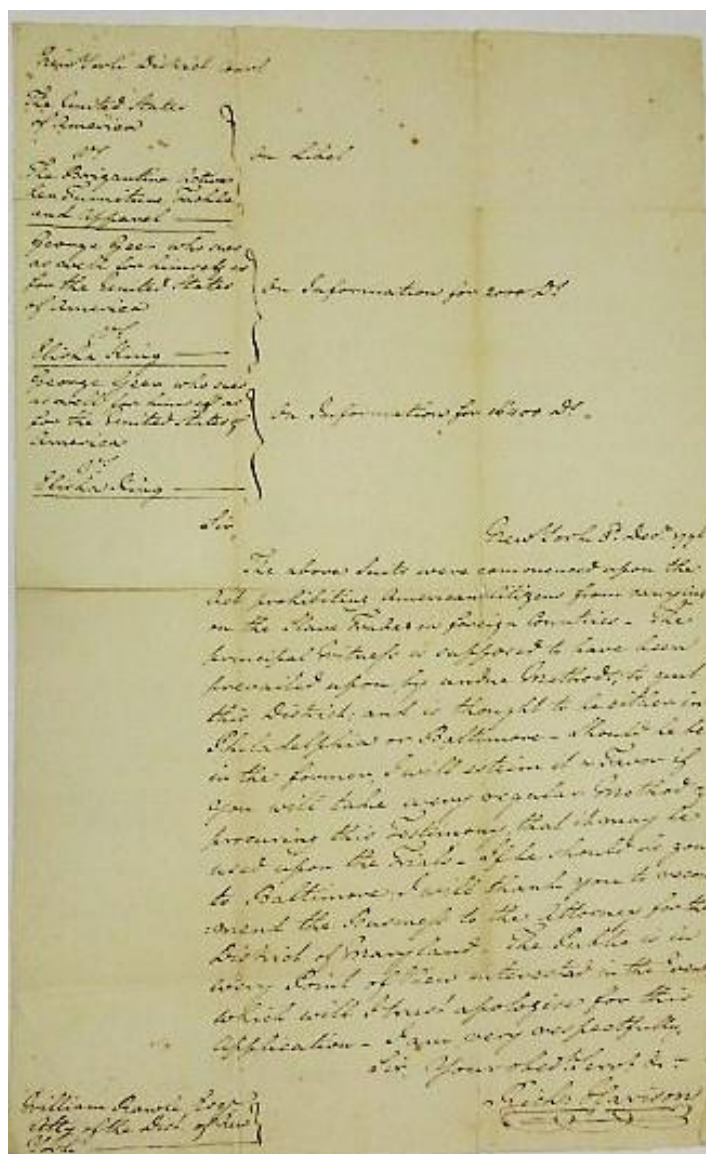 New York District court
The United States
of America
vs
The Brigantine
her Furniture Tackle
and Apparel
On Libel
George Geer who sues
as well for himself as
for the United States
of America
vs
Elisha King
On Information for 2000 Ds
George Geer who sues
as well for himself as
for the United States of
America
vs
Elisha King
On Information for Ds.
Sir
New York Decr
The above Suits were commenced upon the
Act prohibiting American Citizens from carrying
on the Slave Trade to foreign Countries - The
principal Witness is supposed to have been
prevailed upon, by undue Methods, to quit
this District, and is thought to be either in
Philadelphia or Baltimore - should he be
in the former, I will esteem it a Favor if
you will take every regular Method of
procuring this Testimony, that it may be
used upon the Trials - If he should be gone
to Baltimore, I will thank you to recom
mend the Business to the Attorney for the
District of Maryland - The Public is in
every Point of View interested in the Event
which will I trust apologise for this
Application - I am very respectfully,
Sir Your obedt Servt &c -
Richd Harison
William Rawle, Esqr
Atty of the Dist of New
York